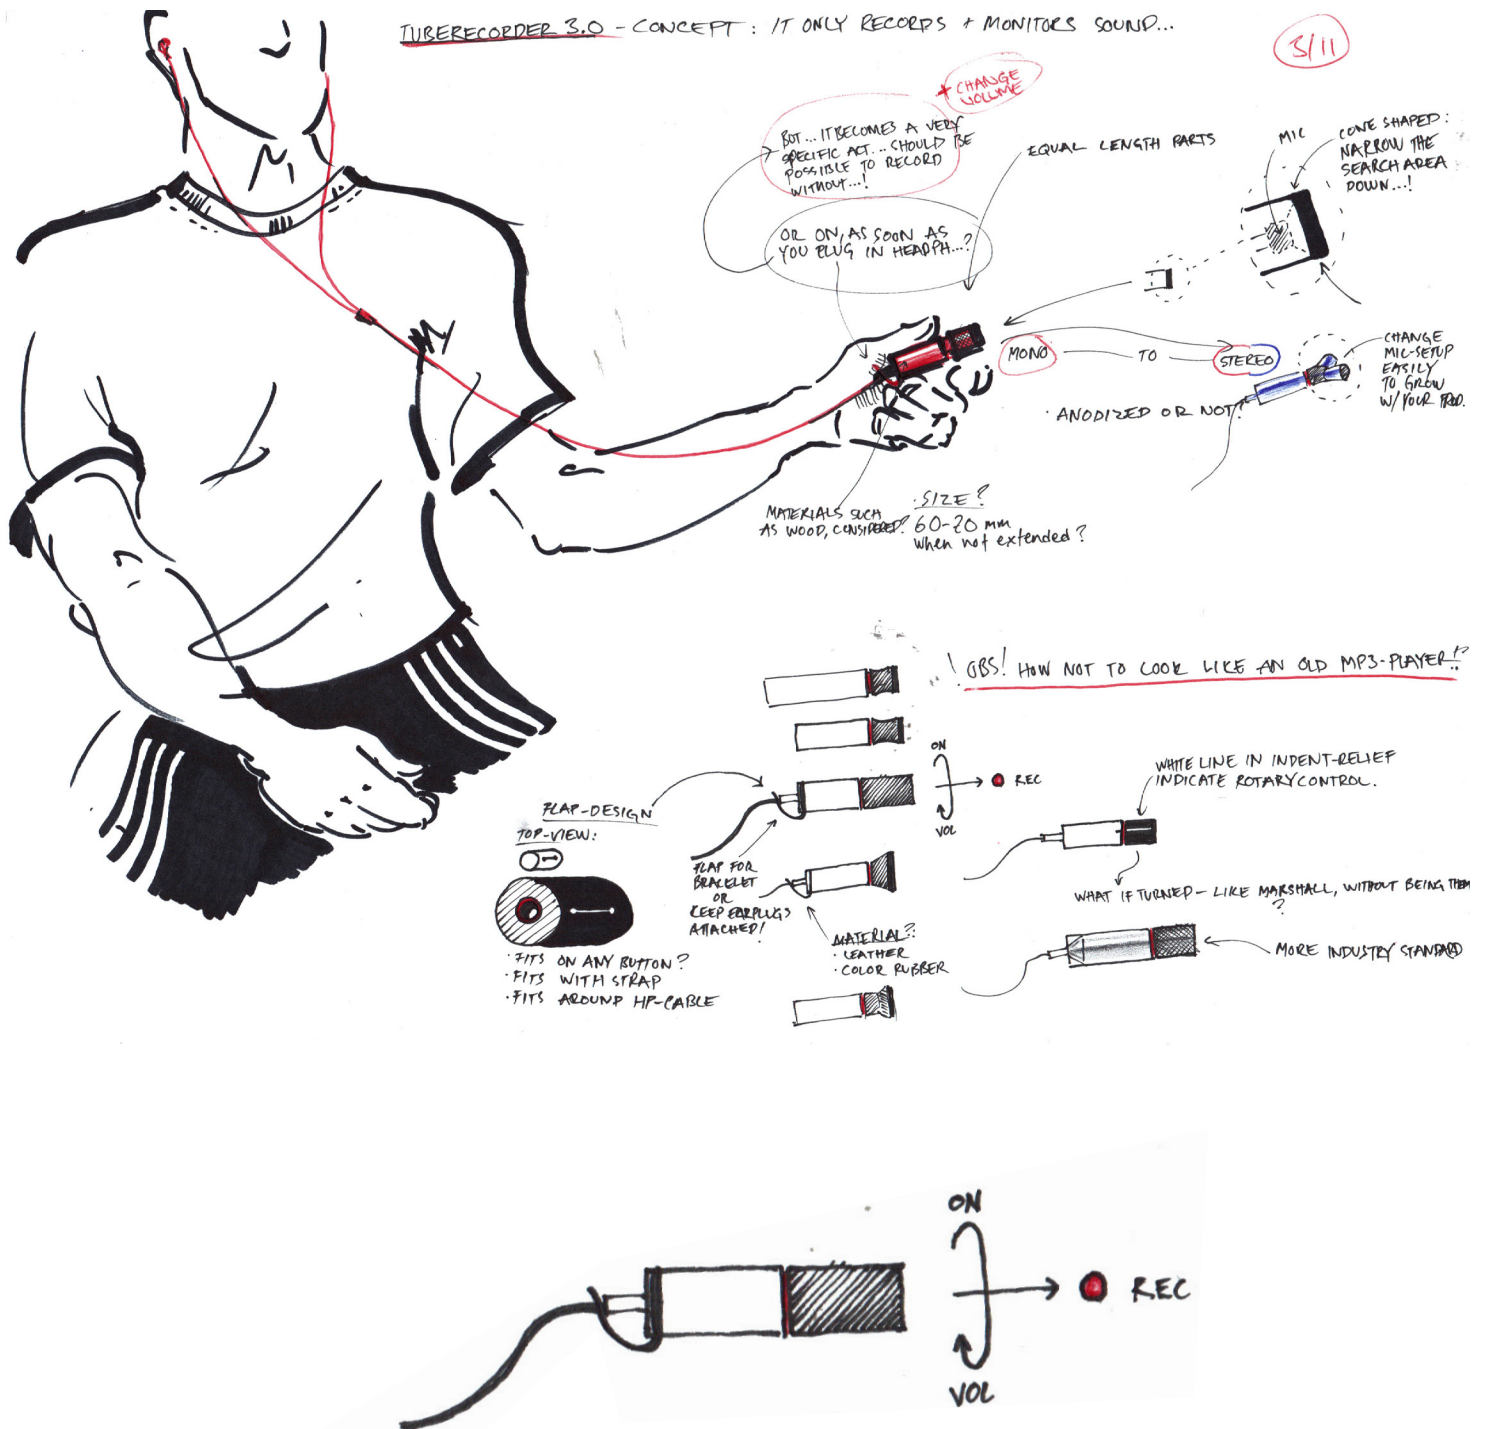 TUBERECORDER 3.0 - CONCEPT: IT ONLY RECORDS + MONITORS SOUND...
3/11
+ CHANGE
VOLUME
BUT... IT BECOMES A VERY
SPECIFIC ACT... SHOULD BE
POSSIBLE TO RECORD
WITHOUT...!
OR ON, AS SOON AS
YOU PLUG IN HEADPH...?
EQUAL LENGTH PARTS
MIC
CONE SHAPED:
NARROW THE
SEARCH AREA
DOWN...!
MONO
TO
STEREO
CHANGE
MIC-SETUP
EASILY
TO GROW
W/ YOUR PROD.
· ANODIZED OR NOT?
MATERIALS SUCH
AS WOOD, CONSIDERED?
· SIZE?
60-20 mm
when not extended?
! OBS! HOW NOT TO LOOK LIKE AN OLD MP3-PLAYER!?
ON
REC
VOL
WHITE LINE IN INDENT-RELIEF
INDICATE ROTARY CONTROL.
WHAT IF TURNED - LIKE MARSHALL, WITHOUT BEING THEM
?
MORE INDUSTRY STANDARD
FLAP-DESIGN
TOP-VIEW:
· FITS ON ANY BUTTON?
· FITS WITH STRAP
· FITS AROUND HP-CABLE
FLAP FOR
BRACELET
OR
KEEP EARPLUGS
ATTACHED!
MATERIAL?:
· LEATHER
· COLOR RUBBER
ON
REC
VOL